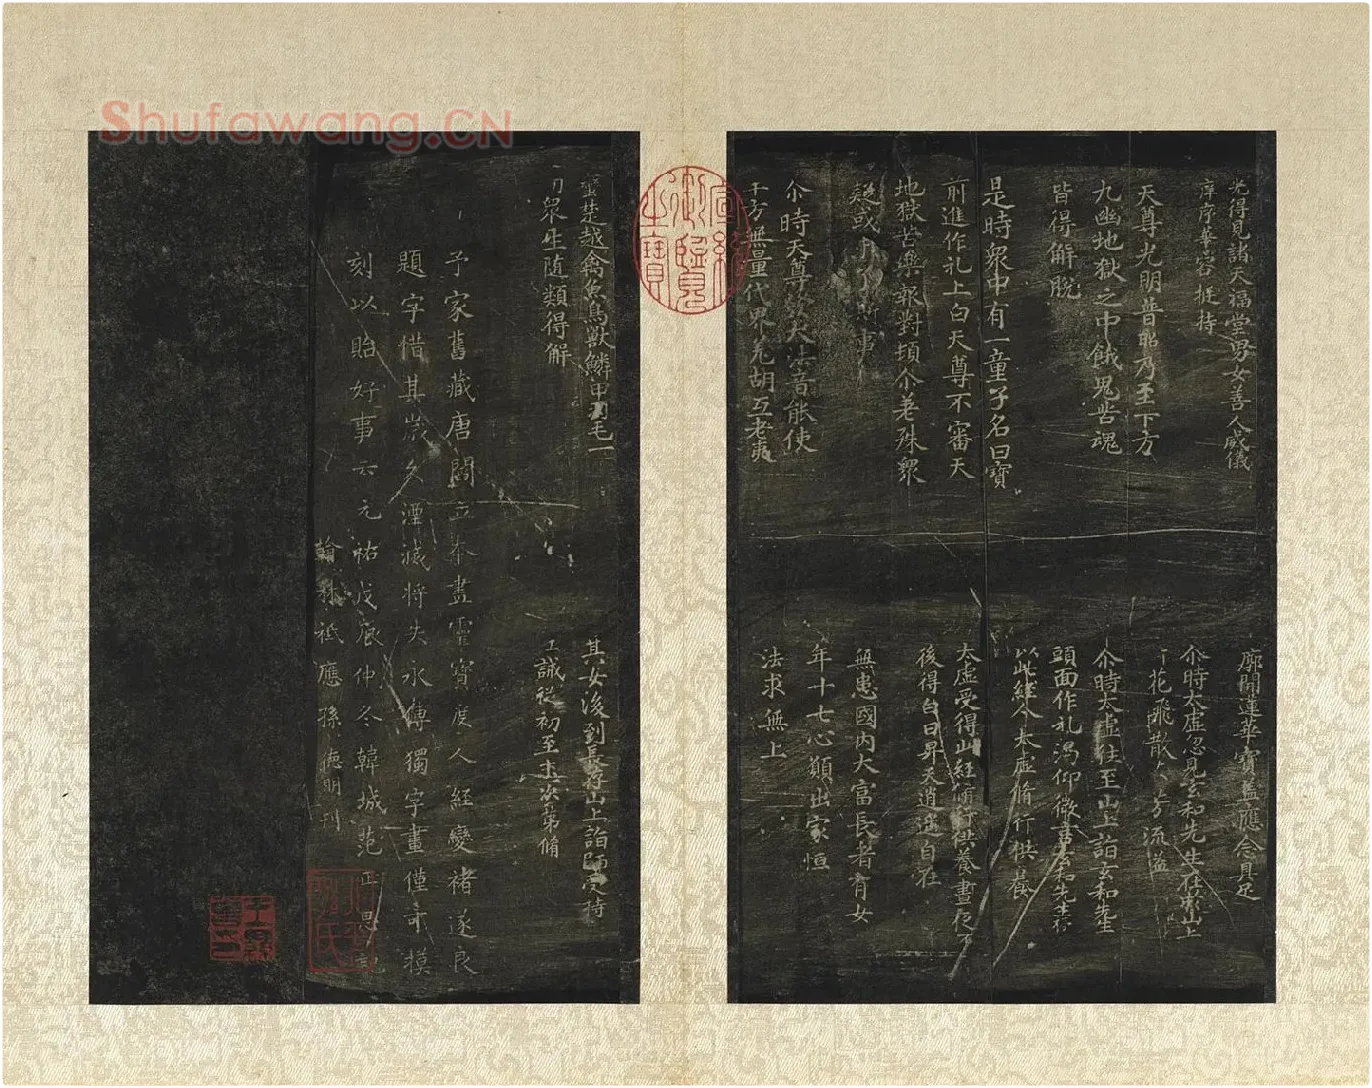 Shufawang.CN
光得見諸天福堂男女善人威儀
庠序華容挺持
天尊光明普照乃至下方
九幽地獄之中餓鬼苦魂
皆得解脫
是時眾中有一童子名曰寶
前進作礼上白天尊不審天
地獄苦樂報對頓尒差殊眾
疑或
尒時天尊以大法音能使
十方無量代界羌胡互老夷
廓開蓮華寶蓋應念具足
尒時太虛忽見玄和先生在山上
花飛散流溢
尒時太虛往至山上詣玄和先生
頭面作礼渴仰微言玄和先生
以此經令太虛脩行供養
太虛受得此經脩行供養晝夜不
後得白日昇天逍遙自在
無恚國內大富長者有女
年十七心願出家恒
法求無上
宣統御覽之寶
蠻楚越禽魚鳥獸鱗甲羽毛一
切眾生隨類得解
其女後到長存山上詣師受持
誠從初至末次第脩
予家舊藏唐閻立本畫靈寶度人經變褚遂良
題字惜其歲久湮滅將失永傳獨字畫僅可摸
刻以貽好事云元祐戊辰仲冬韓城范正思記
翰林祗應孫德明刊